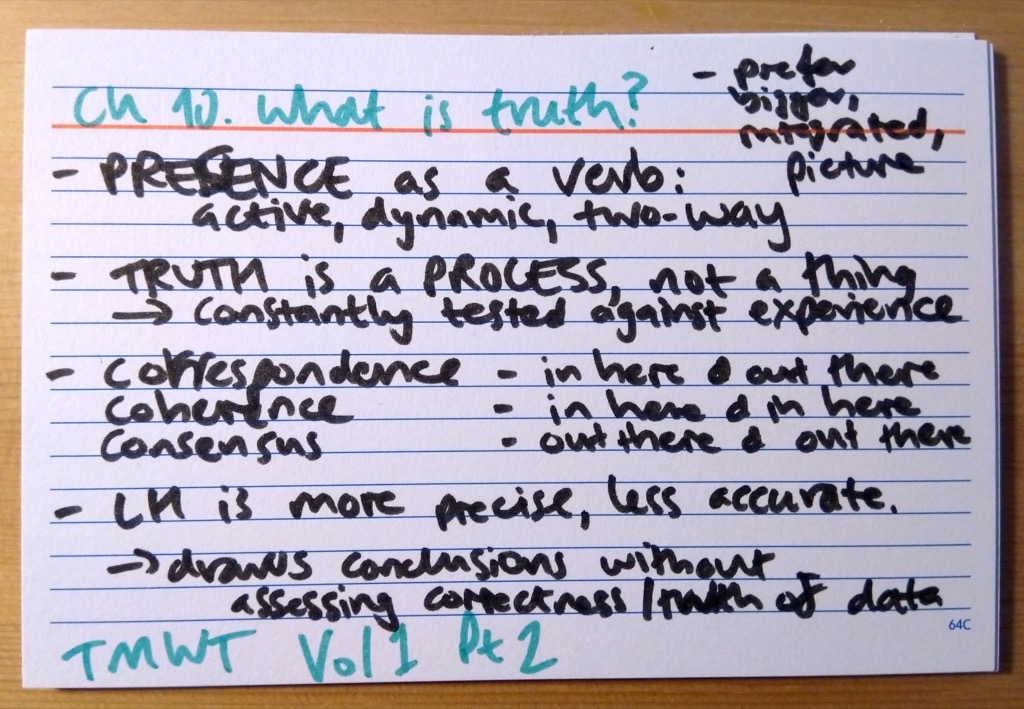 Ch 10. What is truth?
- prefer
bigger,
integrated,
picture
- PRESENCE as a verb:
active, dynamic, two-way
- TRUTH is a PROCESS, not a thing
→ constantly tested against experience
- correspondence - in here & out there
coherence - in here & in here
consensus - out there & out there
- LH is more precise, less accurate.
→ draws conclusions without
assessing correctness/truth of data
64C
TMWT Vol 1 Pt 2